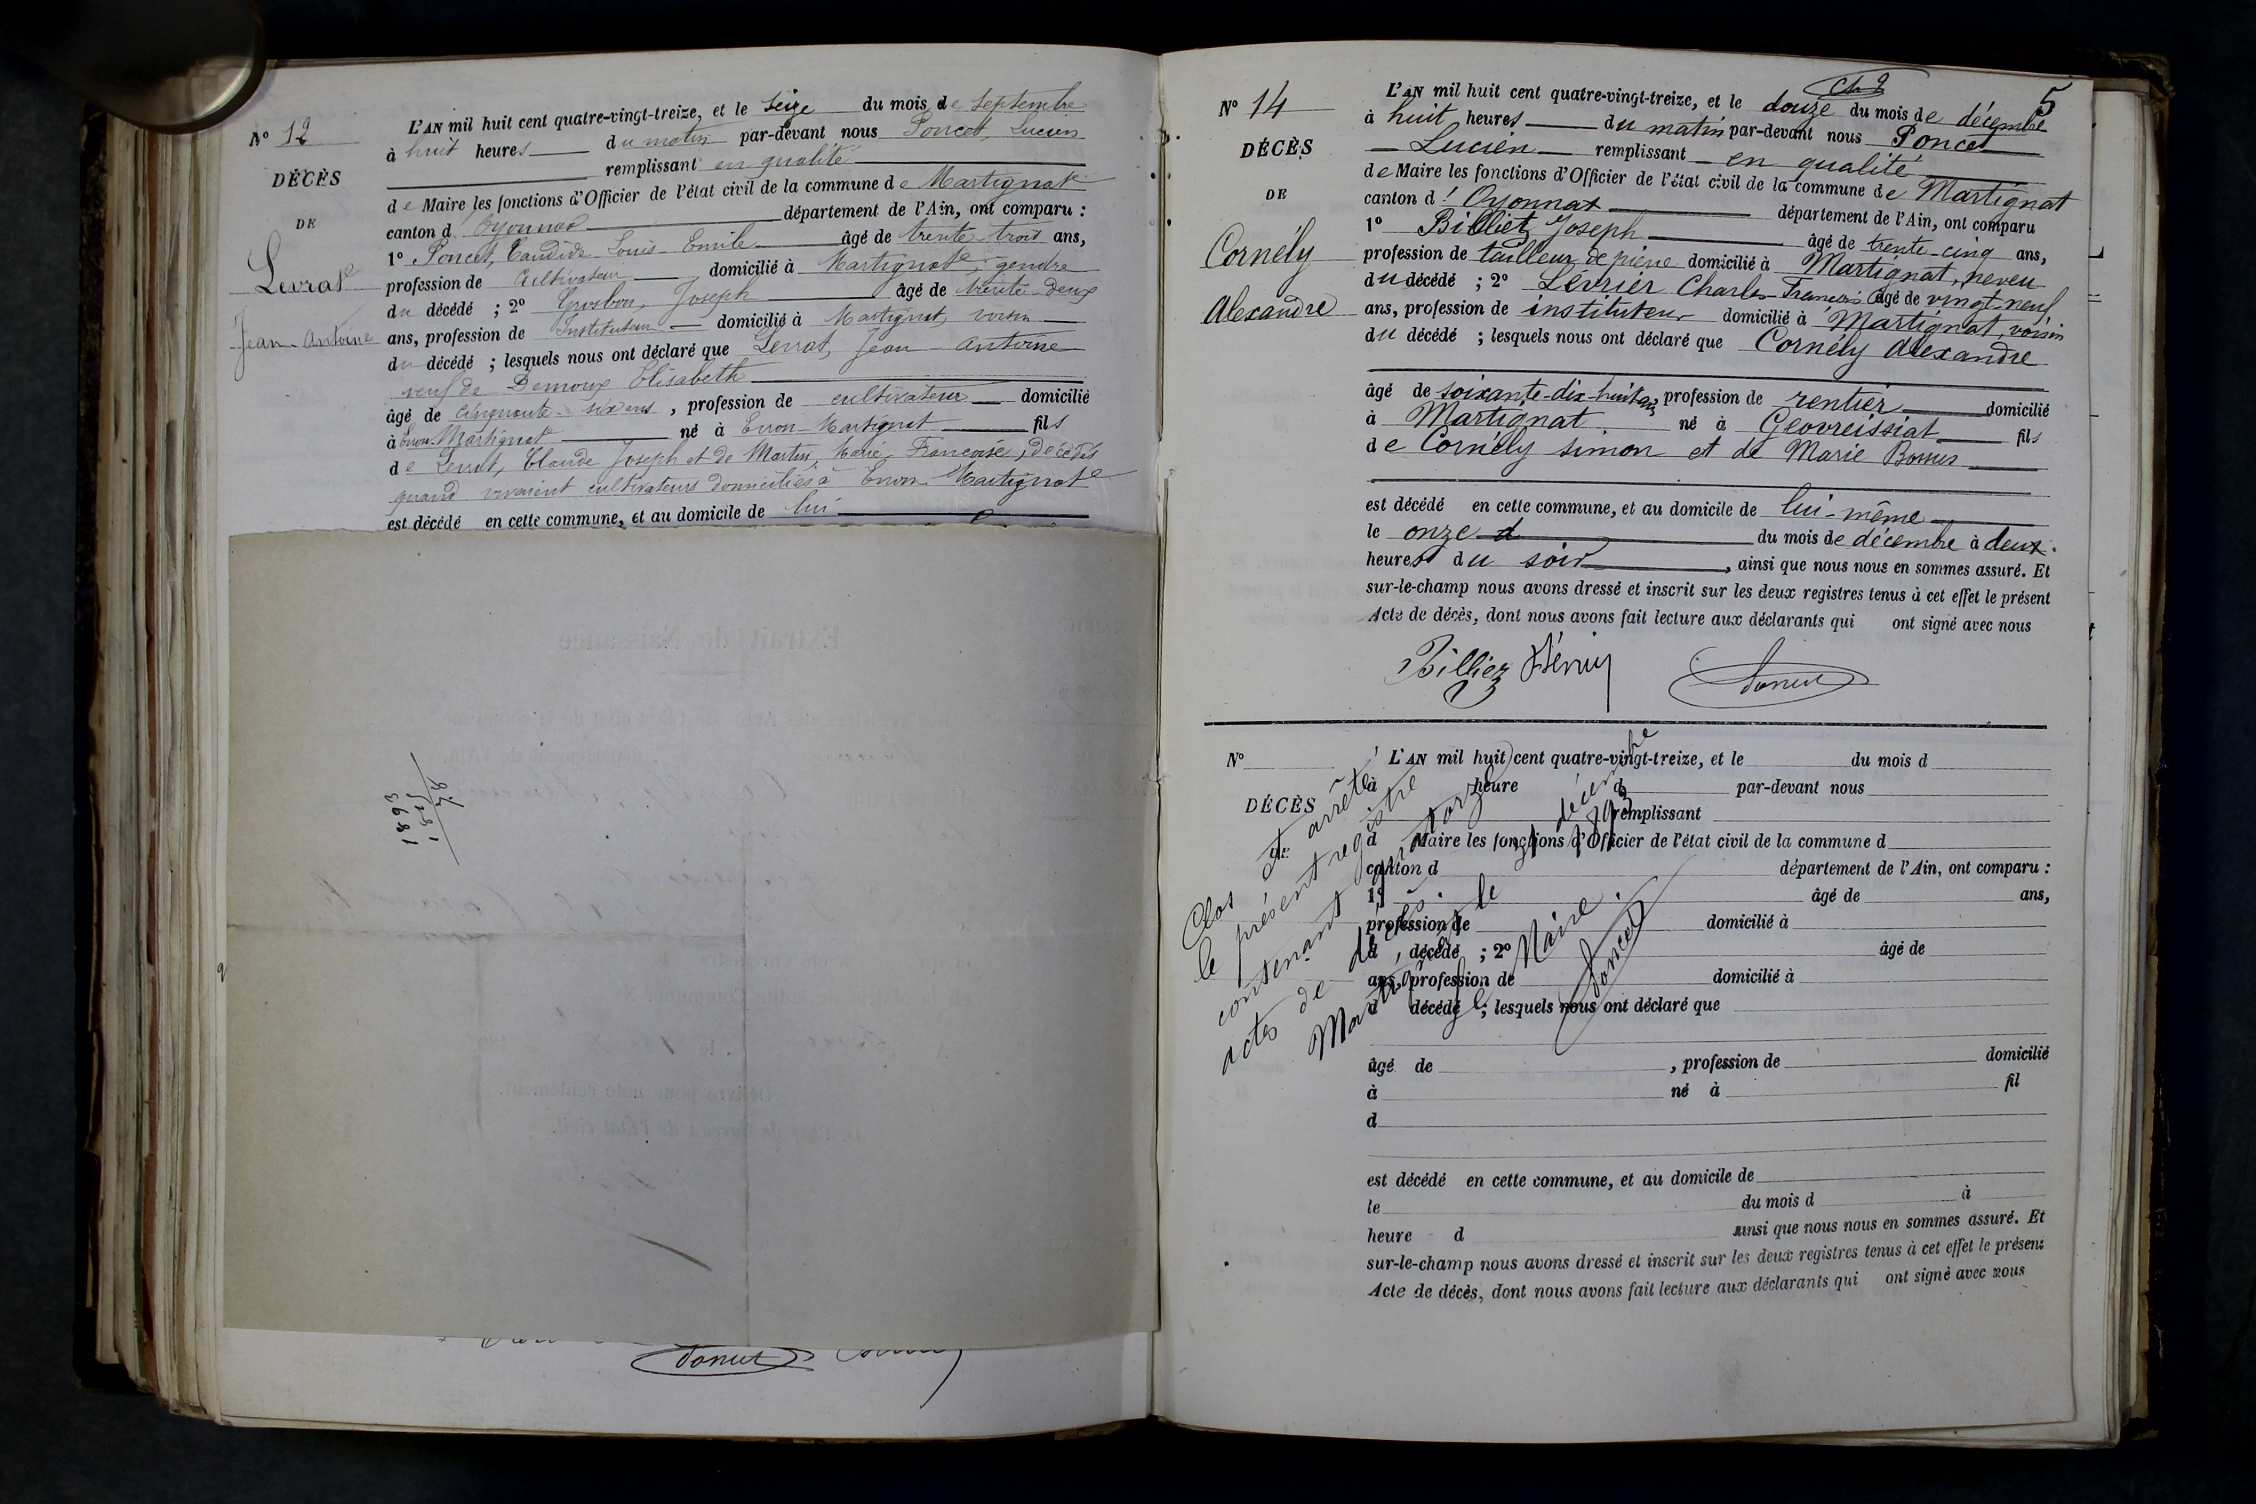 N° 12
DÉCÈS
DE
Levrat
Jean-Antoine
L'AN mil huit cent quatre-vingt-treize, et le seize du mois de Septembre
à huit heures du matin par-devant nous Poncet, Lucien
remplissant en qualité
de Maire les fonctions d'Officier de l'état civil de la commune de Martignat
canton d Oyonnax département de l'Ain, ont comparu :
1° Poncet, Candide Louis Emile âgé de trente trois ans,
profession de Cultivateur domicilié à Martignat, gendre
du décédé ; 2° Joseph âgé de trente-deux
ans, profession de Instituteur domicilié à Martignat, voisin
du décédé ; lesquels nous ont déclaré que Levrat, Jean-Antoine
veuf de Demoux Elisabeth
âgé de cinquante-six ans, profession de cultivateur domicilié
à Evron-Martignat né à Evron-Martignat fils
de Levrat, Claude Joseph et de Martin, Marie, Françoise, décédés
quand vivaient cultivateurs domiciliés à Evron-Martignat
est décédé en cette commune, et au domicile de lui
1893
1825
78
5
N° 14
DÉCÈS
DE
Cornély
Alexandre
L'AN mil huit cent quatre-vingt-treize, et le douze du mois de décembre
à huit heures du matin par-devant nous Poncet
Lucien remplissant en qualité
de Maire les fonctions d'Officier de l'état civil de la commune de Martignat
canton d'Oyonnax département de l'Ain, ont comparu
1° Billiet Joseph âgé de trente-cinq ans,
profession de tailleur de pierre domicilié à Martignat, neveu
du décédé ; 2° Lévrier Charles-François âgé de vingt-neuf
ans, profession de instituteur domicilié à Martignat, voisin
du décédé ; lesquels nous ont déclaré que Cornély Alexandre
âgé de soixante-dix-huit ans, profession de rentier domicilié
à Martignat né à Géovreissiat fils
de Cornély Simon et de Marie
est décédé en cette commune, et au domicile de lui-même
le onze d du mois de décembre à deux
heures du soir, ainsi que nous nous en sommes assuré. Et
sur-le-champ nous avons dressé et inscrit sur les deux registres tenus à cet effet le présent
Acte de décès, dont nous avons fait lecture aux déclarants qui ont signé avec nous
Billiez Poncet
N°
DÉCÈS
DE
L'AN mil huit cent quatre-vingt-treize, et le du mois d
à heure d par-devant nous
remplissant
d Maire les fonctions d'Officier de l'état civil de la commune d
canton d département de l'Ain, ont comparu :
1° âgé de ans,
profession de domicilié à
d décédé ; 2° âgé de
ans, profession de domicilié à
d décédé ; lesquels nous ont déclaré que
âgé de , profession de domicilié
à né à fil
d
est décédé en cette commune, et au domicile de
le du mois d à
heure d ainsi que nous nous en sommes assuré. Et
sur-le-champ nous avons dressé et inscrit sur les deux registres tenus à cet effet le présent
Acte de décès, dont nous avons fait lecture aux déclarants qui ont signé avec nous
Clos et arrêté
le présent registre
contenant quatorze
actes de décès.
Martignat le 31 décembre 1893
le Maire.
Poncet